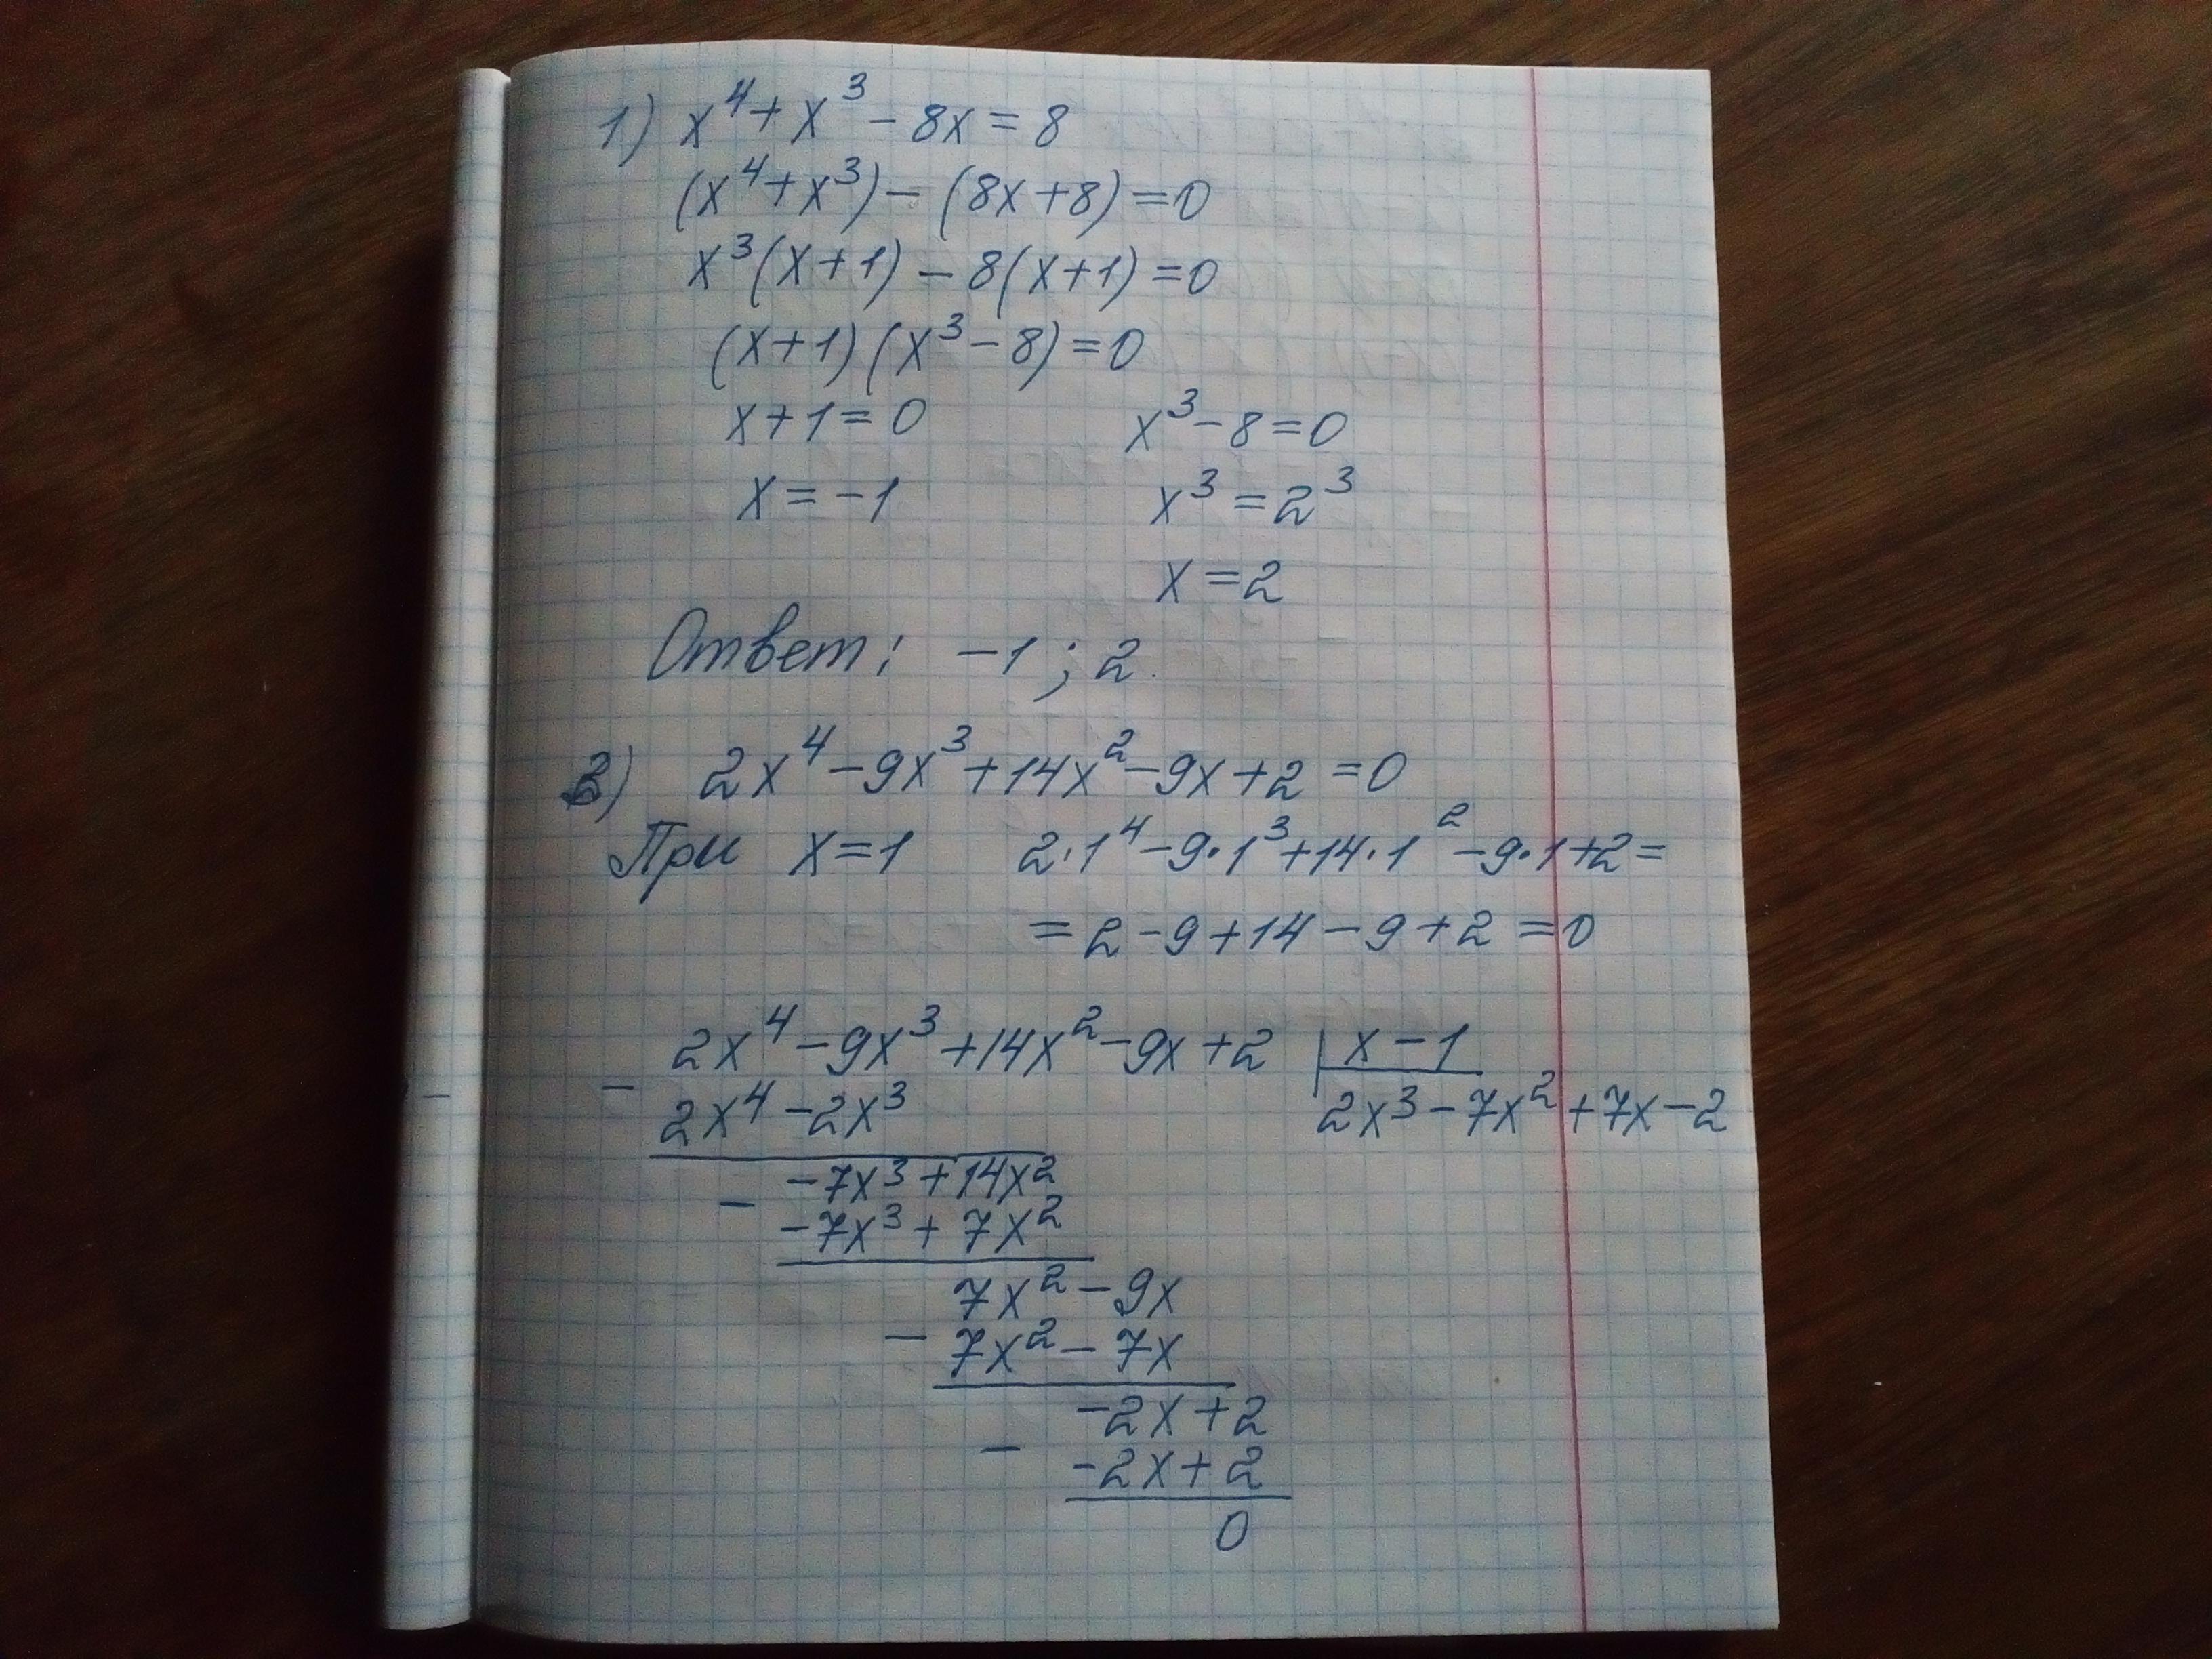 1) x⁴ + x³ - 8x = 8
(x⁴ + x³) - (8x + 8) = 0
x³(x + 1) - 8(x + 1) = 0
(x + 1)(x³ - 8) = 0
x + 1 = 0 x³ - 8 = 0
x = -1 x³ = 2³
x = 2
Ответ: -1; 2.
2) 2x⁴ - 9x³ + 14x² - 9x + 2 = 0
При x = 1 2·1⁴ - 9·1³ + 14·1² - 9·1 + 2 =
= 2 - 9 + 14 - 9 + 2 = 0
2x⁴ - 9x³ + 14x² - 9x + 2 | x - 1
- 2x⁴ - 2x³ 2x³ - 7x² + 7x - 2
-7x³ + 14x²
- -7x³ + 7x²
7x² - 9x
- 7x² - 7x
-2x + 2
- -2x + 2
0